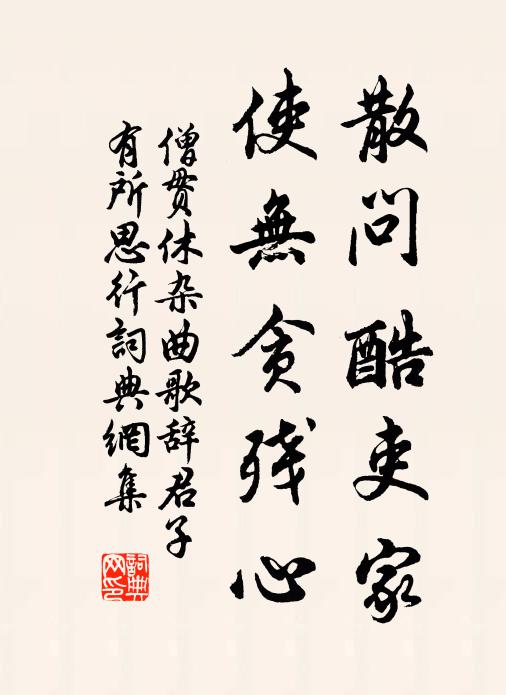 散问酷吏家
使無贪残心
僧贯休杂曲歌辞君子
有所思行詞典網集
詞典
网印